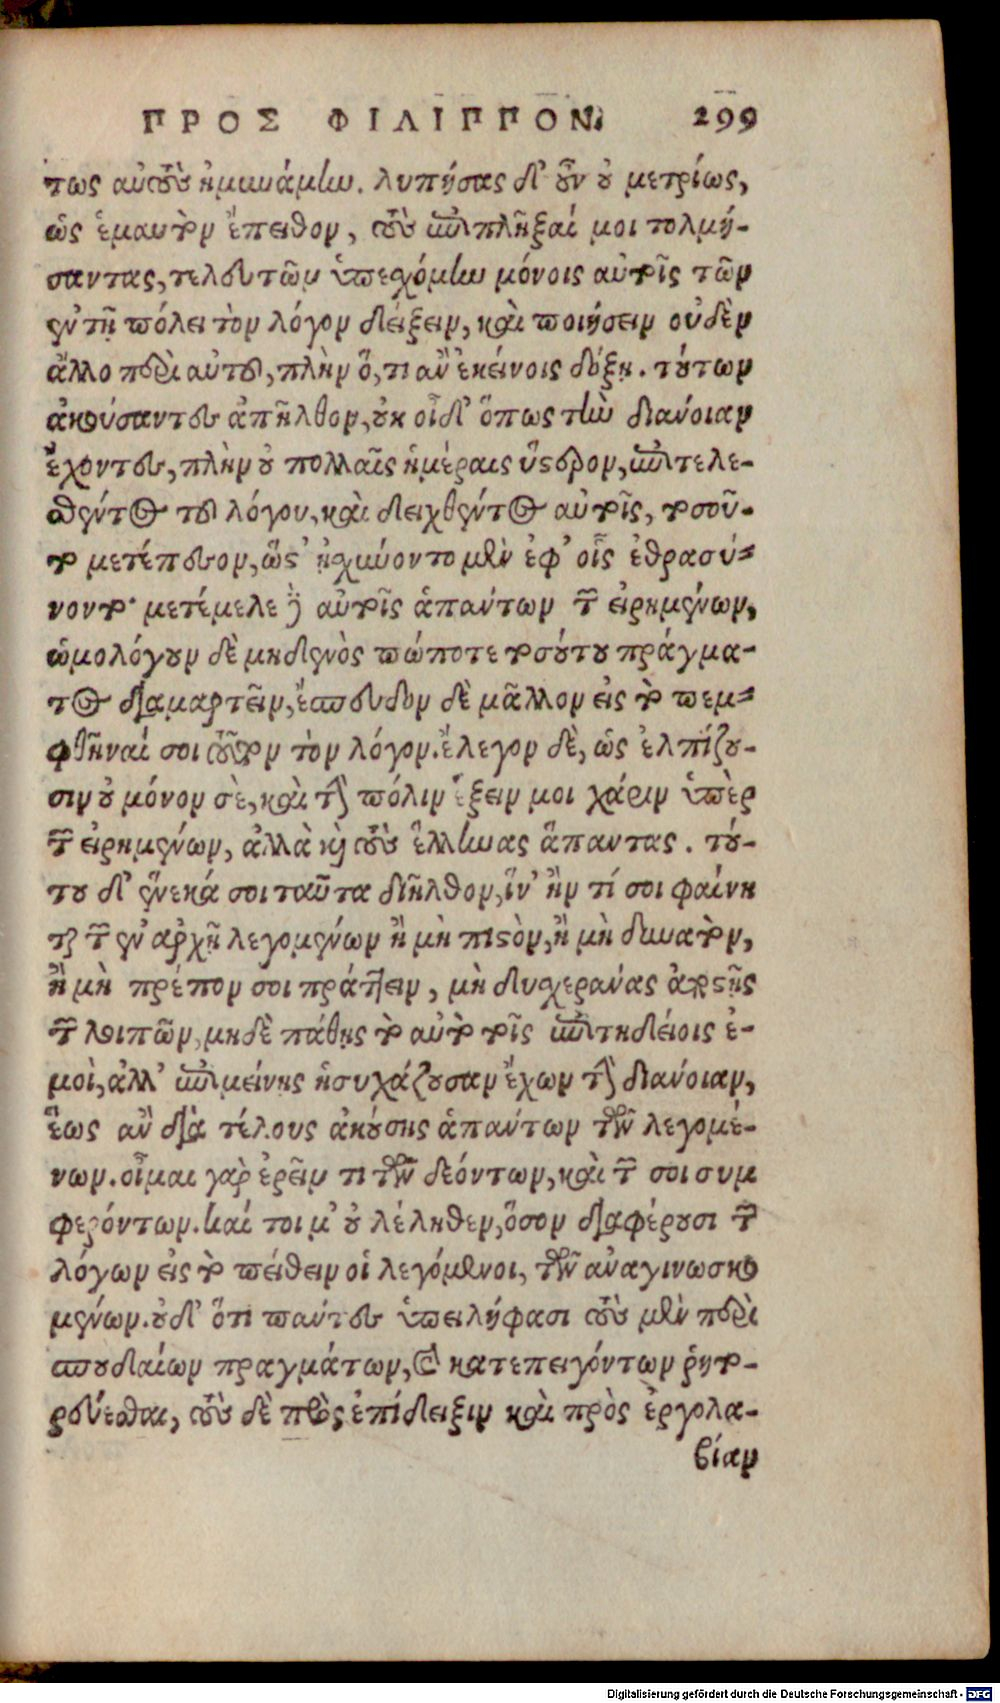 ΠΡΟΣ ΦΙΛΙΠΠΟΝ. 299
τως αὐτοὺς ἠμυνάμην. λυπήσας δ' οὖν οὐ μετρίως,
ὡς ἐμαυτὸν ἔπειθον, τοὺς ἐπιπλῆξαί μοι τολμή-
σαντας, τελευτῶν ὑπεχόμην μόνοις αὐτοῖς τῶν
ἐν τῇ πόλει τὸν λόγον δείξειν, καὶ ποιήσειν οὐδὲν
ἄλλο περὶ αὐτοῦ, πλὴν ὅ, τι ἂν ἐκείνοις δόξῃ. τούτων
ἀκούσαντες ἀπῆλθον, οὐκ οἶδ' ὅπως τὴν διάνοιαν
ἔχοντες, πλὴν οὐ πολλαῖς ἡμέραις ὕστερον, ἐπιτελε-
σθέντος τοῦ λόγου, καὶ δειχθέντος αὐτοῖς, τοσοῦ-
το μετέπεσον, ὥστ' ᾐσχύνοντο μὲν ἐφ' οἷς ἐθρασύ-
νοντο· μετέμελε δὲ αὐτοῖς ἁπάντων τῶν εἰρημένων,
ὡμολόγουν δὲ μηδενὸς πώποτε τοσούτου πράγμα-
τος διαμαρτεῖν, ἔσπευδον δὲ μᾶλλον εἰς τὸ πεμ-
φθῆναί σοι τοῦτον τὸν λόγον. ἔλεγον δὲ, ὡς ἐλπίζου-
σιν οὐ μόνον σὲ, καὶ τὴν πόλιν ἕξειν μοι χάριν ὑπὲρ
τῶν εἰρημένων, ἀλλὰ καὶ τοὺς ἕλληνας ἅπαντας. τού-
του δ' ἕνεκά σοι ταῦτα διῆλθον, ἵν' ἤν τί σοι φαίνη
ται τῶν ἐν ἀρχῇ λεγομένων ἢ μὴ πιστὸν, ἢ μὴ δυνατὸν,
ἢ μὴ πρέπον σοι πράττειν, μὴ δυσχεράνας ἀποστῇς
τῶν λοιπῶν, μηδὲ πάθῃς τὸ αὐτὸ τοῖς ἐπιτηδείοις ἐ-
μοὶ, ἀλλ' ἐπιμείνῃς ἡσυχάζουσαν ἔχων τὴν διάνοιαν,
ἕως ἂν διὰ τέλους ἀκούσῃς ἁπάντων τῶν λεγομέ-
νων. οἶμαι γὰρ ἐρεῖν τι τῶν δεόντων, καὶ τῶν σοι συμ
φερόντων. καί τοι μ' οὐ λέληθεν, ὅσον διαφέρουσι τῶν
λόγων εἰς τὸ πείθειν οἱ λεγόμενοι, τῶν ἀναγινωσκο
μένων. οὐδ' ὅτι πάντες ὑπειλήφασι τοὺς μὲν περὶ
σπουδαίων πραγμάτων, καὶ κατεπειγόντων ῥητο-
ρεύεσθαι, τοὺς δὲ πρὸς ἐπίδειξιν καὶ πρὸς ἐργολα-
βίαν
Digitalisierung gefördert durch die Deutsche Forschungsgemeinschaft - DFG